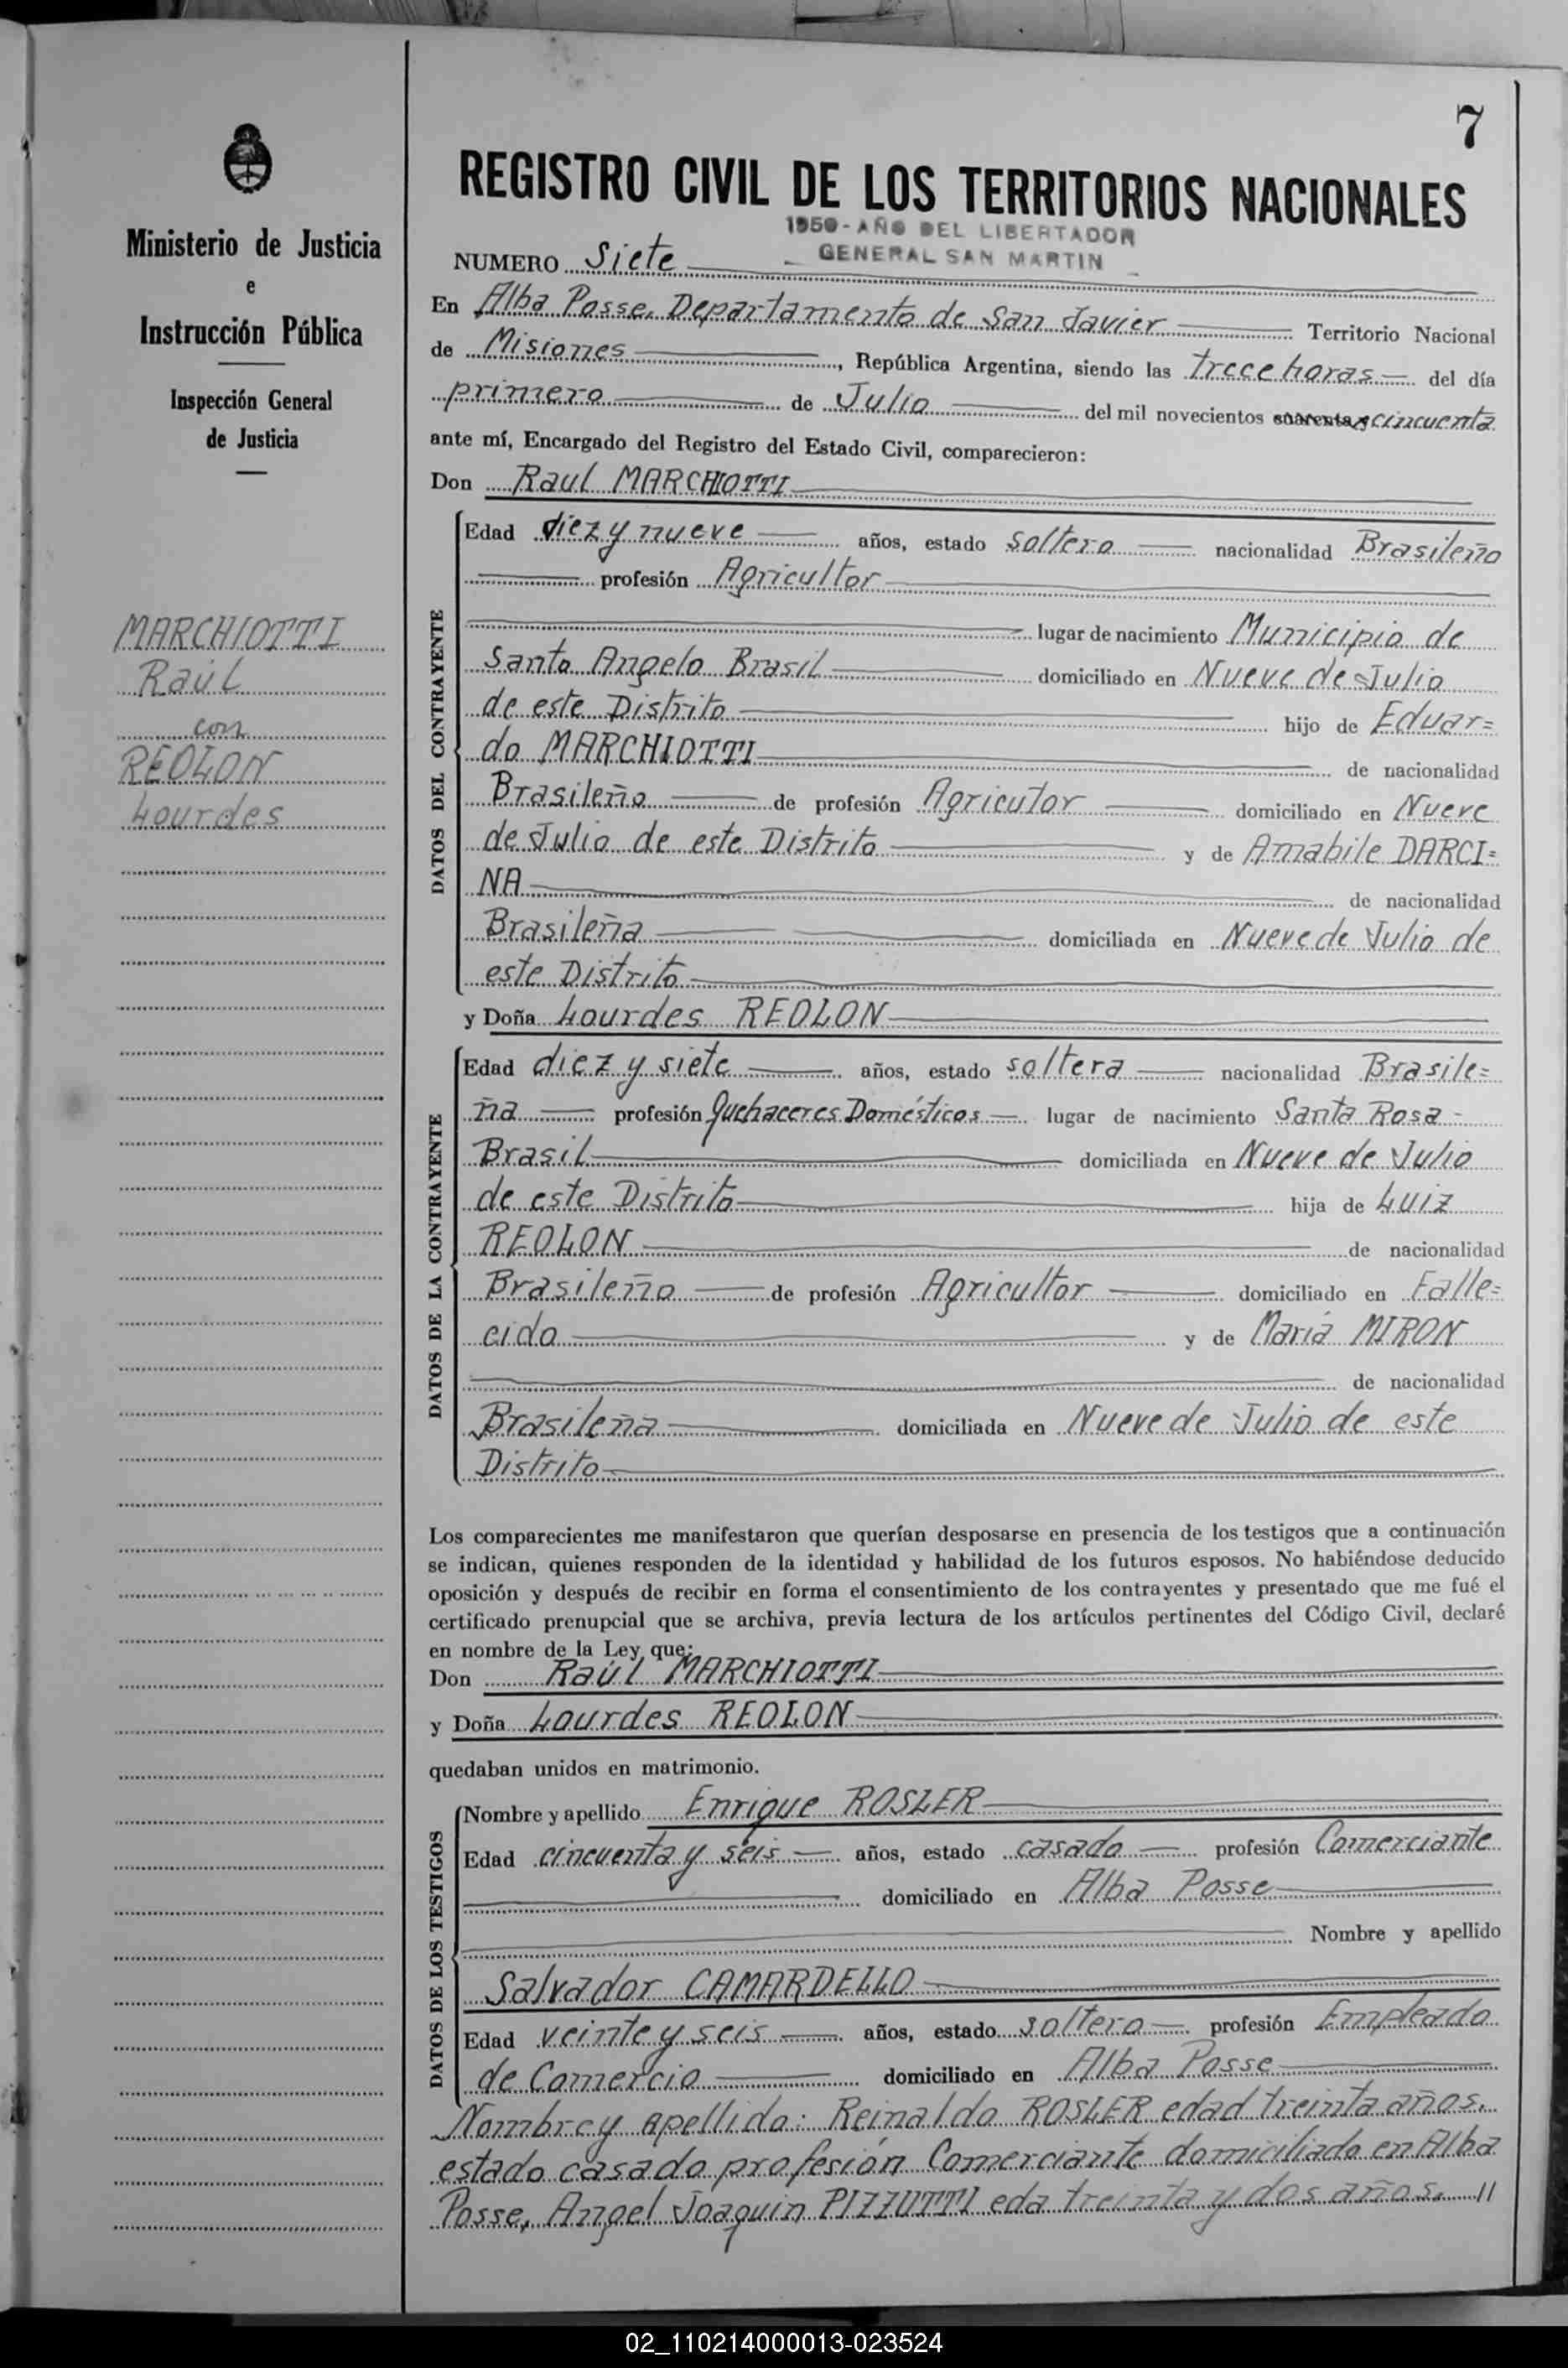 7
Ministerio de Justicia
e
Instrucción Pública
Inspección General
de Justicia
MARCHIOTTI
Raúl
con
REOLON
Lourdes
REGISTRO CIVIL DE LOS TERRITORIOS NACIONALES
1950 - AÑO DEL LIBERTADOR
GENERAL SAN MARTIN
NUMERO Siete
En Alba Posse, Departamento de San Javier Territorio Nacional
de Misiones, República Argentina, siendo las trece horas del día
primero de Julio del mil novecientos cuarenta y cincuenta
ante mí, Encargado del Registro del Estado Civil, comparecieron:
Don Raul MARCHIOTTI
DATOS DEL CONTRAYENTE
Edad diez y nueve años, estado soltero nacionalidad Brasileño
profesión Agricultor
lugar de nacimiento Municipio de
Santo Angelo Brasil domiciliado en Nueve de Julio
de este Distrito hijo de Eduar=
do MARCHIOTTI de nacionalidad
Brasileño de profesión Agricutor domiciliado en Nueve
de Julio de este Distrito y de Amabile DARCI=
NA de nacionalidad
Brasileña domiciliada en Nueve de Julio de
este Distrito
y Doña Lourdes REOLON
DATOS DE LA CONTRAYENTE
Edad diez y siete años, estado soltera nacionalidad Brasile=
ña profesión Quehaceres Domésticos lugar de nacimiento Santa Rosa -
Brasil domiciliada en Nueve de Julio
de este Distrito hija de Luiz
REOLON de nacionalidad
Brasileño de profesión Agricultor domiciliado en Falle=
cido y de María MIRON
de nacionalidad
Brasileña domiciliada en Nueve de Julio de este
Distrito
Los comparecientes me manifestaron que querían desposarse en presencia de los testigos que a continuación
se indican, quienes responden de la identidad y habilidad de los futuros esposos. No habiéndose deducido
oposición y después de recibir en forma el consentimiento de los contrayentes y presentado que me fué el
certificado prenupcial que se archiva, previa lectura de los artículos pertinentes del Código Civil, declaré
en nombre de la Ley que:
Don Raúl MARCHIOTTI
y Doña Lourdes REOLON
quedaban unidos en matrimonio.
DATOS DE LOS TESTIGOS
Nombre y apellido Enrique ROSLER
Edad cincuenta y seis años, estado casado profesión Comerciante
domiciliado en Alba Posse
Nombre y apellido
Salvador CAMARDELLO
Edad veinte y seis años, estado soltero profesión Empleado
de Comercio domiciliado en Alba Posse
Nombre y apellido: Reinaldo ROSLER edad treinta años,
estado casado profesión Comerciante domiciliado en Alba
Posse, Angel Joaquin PIZZUTTI eda treinta y dos años, //
02_110214000013-023524